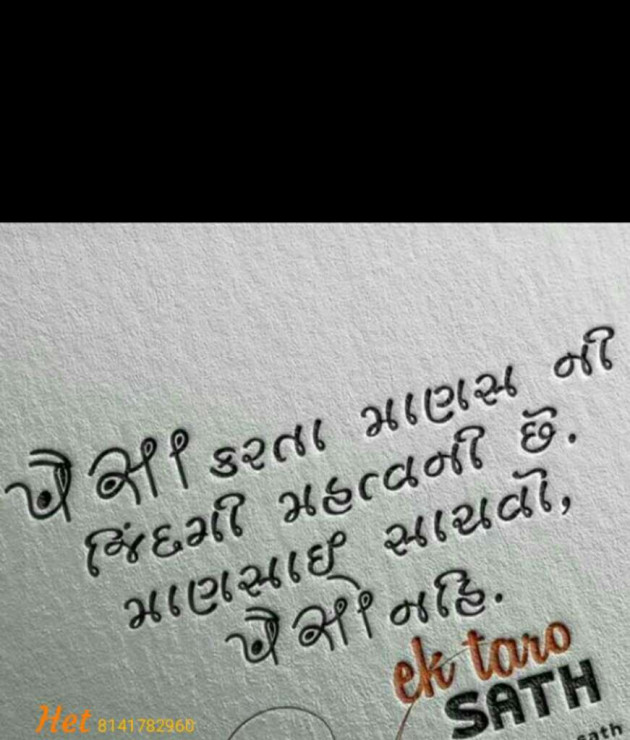 પૈસા કરતા માણસ ની
જિંદગી મહત્વની છે.
માણસાઈ સાચવો,
પૈસો નહિ.
ek taro
SATH
Het 8141782960
sath